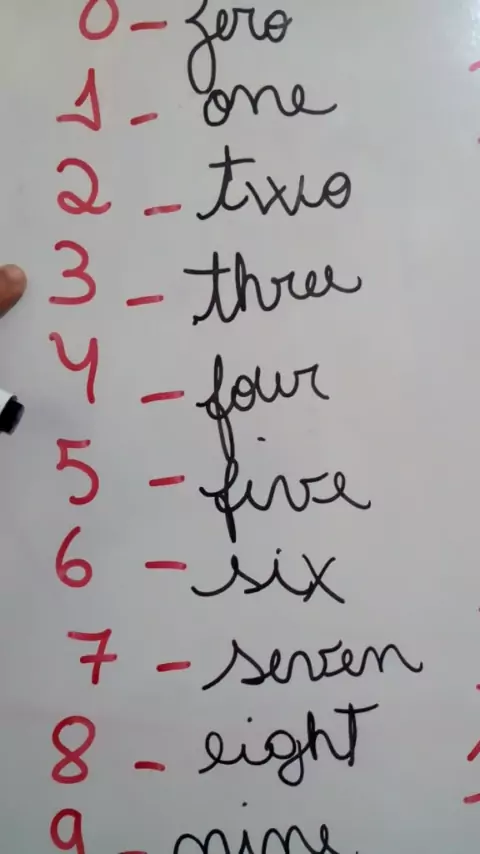 0 - zero
1 - one
2 - two
3 - three
4 - four
5 - five
6 - six
7 - seven
8 - eight
9 - nine